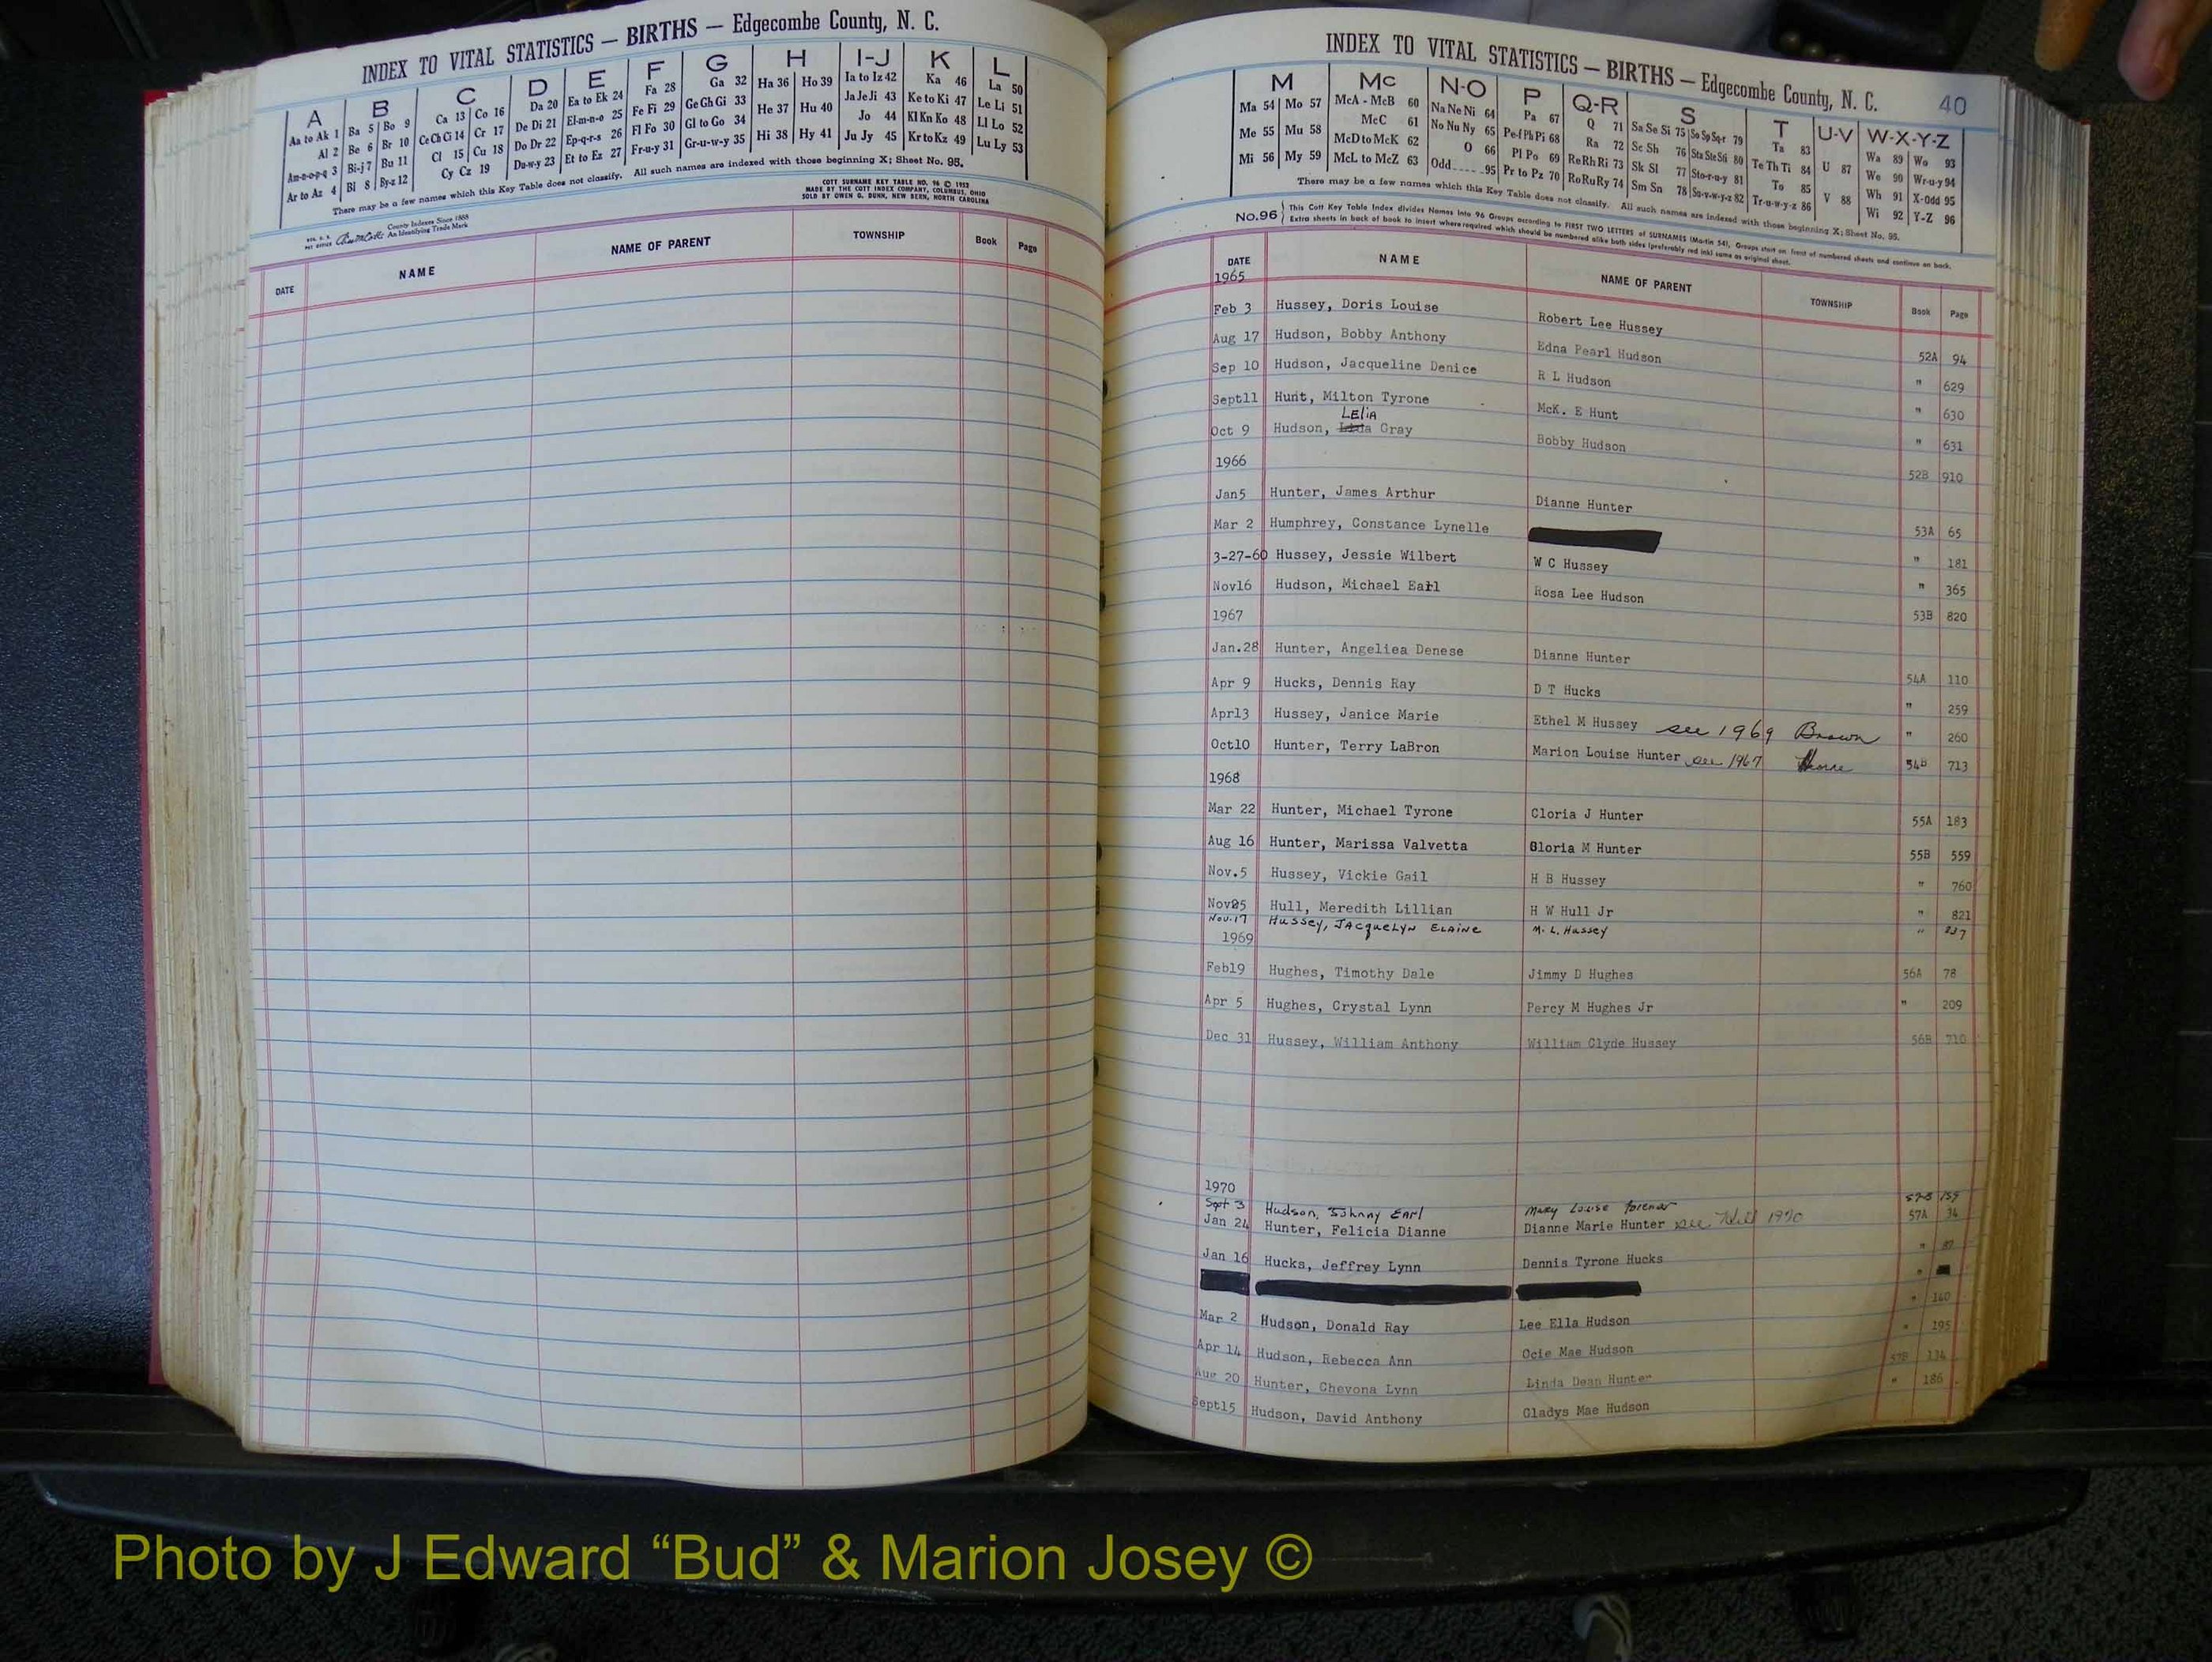 INDEX TO VITAL STATISTICS — BIRTHS — Edgecombe County, N. C.
A B C D E F G H I-J K L
Aa to Ak 1 Ba 5 Bo 9 Ca 13 Co 16 Da 20 Ea to Ek 24 Fa 28 Ga 32 Ha 36 Ho 39 Ia to Iz 42 Ka 46 La 50
Al 2 Be 6 Br 10 Ce Ch Ci 14 Cr 17 De Di 21 El-m-n-o 25 Fe Fi 29 Ge Gh Gi 33 He 37 Hu 40 Ja Je Ji 43 Ke to Ki 47 Le Li 51
Am-n-o-p-q 3 Bi-j 7 Bu 11 Cl 15 Cu 18 Do Dr 22 Ep-q-r-s 26 Fl Fo 30 Gl to Go 34 Hi 38 Hy 41 Jo 44 Kl Kn Ko 48 Ll Lo 52
Ar to Az 4 Bl 8 By-z 12 Cy Cz 19 Du-w-y 23 Et to Ez 27 Fr-u-y 31 Gr-u-w-y 35 Ju Jy 45 Kr to Kz 49 Lu Ly 53
There may be a few names which this Key Table does not classify. All such names are indexed with those beginning X; Sheet No. 95.
COTT SURNAME KEY TABLE NO. 96 © 1953
MADE BY THE COTT INDEX COMPANY, COLUMBUS, OHIO
SOLD BY OWEN G. DUNN, NEW BERN, NORTH CAROLINA
County Indexes Since 1888
An Identifying Trade Mark
DATE NAME NAME OF PARENT TOWNSHIP Book Page
INDEX TO VITAL STATISTICS — BIRTHS — Edgecombe County, N. C. 40
M Mc N-O P Q-R S T U-V W-X-Y-Z
Ma 54 Mo 57 McA - McB 60 Na Ne Ni 64 Pa 67 Q 71 Sa Se Si 75 So Sp Sq-r 79 Ta 83 Wa 89 Wo 93
Me 55 Mu 58 McC 61 No Nu Ny 65 Pe-f Ph Pi 68 Ra 72 Sc Sh 76 Sta Ste Sti 80 Te Th Ti 84 U 87 We 90 Wr-u-y 94
Mi 56 My 59 McD to McK 62 O 66 Pl Po 69 Re Rh Ri 73 Sk Sl 77 Sto-r-u-y 81 To 85 V 88 Wh 91 X-Odd 95
McL to McZ 63 Odd 95 Pr to Pz 70 Ro Ru Ry 74 Sm Sn 78 Su-v-w-y-z 82 Tr-u-w-y-z 86 Wi 92 Y-Z 96
There may be a few names which this Key Table does not classify. All such names are indexed with those beginning X; Sheet No. 95.
No. 96 This Cott Key Table Index divides Names into 96 Groups according to FIRST TWO LETTERS of SURNAMES (Martin 54). Groups start on front of numbered sheets and continue on back.
Extra sheets in back of book to insert where required which should be numbered alike both sides (preferably red ink) same as original sheet.
DATE NAME NAME OF PARENT TOWNSHIP Book Page
1965
Feb 3 Hussey, Doris Louise Robert Lee Hussey 52A 94
Aug 17 Hudson, Bobby Anthony Edna Pearl Hudson " 629
Sep 10 Hudson, Jacqueline Denice R L Hudson " 630
Sept11 Hunt, Milton Tyrone McK. E Hunt " 631
LEliA
Oct 9 Hudson, Gray Bobby Hudson 52B 910
1966
Jan5 Hunter, James Arthur Dianne Hunter 53A 65
Mar 2 Humphrey, Constance Lynelle " 181
3-27-60 Hussey, Jessie Wilbert W C Hussey " 365
Nov16 Hudson, Michael Earl Rosa Lee Hudson 53B 820
1967
Jan.28 Hunter, Angeliea Denese Dianne Hunter 54A 110
Apr 9 Hucks, Dennis Ray D T Hucks " 259
Apr13 Hussey, Janice Marie Ethel M Hussey see 1969 Brown " 260
Oct10 Hunter, Terry LaBron Marion Louise Hunter see 1967 54B 713
1968
Mar 22 Hunter, Michael Tyrone Cloria J Hunter 55A 183
Aug 16 Hunter, Marissa Valvetta Gloria M Hunter 55B 559
Nov.5 Hussey, Vickie Gail H B Hussey " 760
Nov25 Hull, Meredith Lillian H W Hull Jr " 821
Nov.17 Hussey, JAcqueLyN ELAiNe M. L. Hussey "
1969
Feb19 Hughes, Timothy Dale Jimmy D Hughes 56A 78
Apr 5 Hughes, Crystal Lynn Percy M Hughes Jr " 209
Dec 31 Hussey, William Anthony William Clyde Hussey 56B 710
1970
Sept 3 Hudson, Johnny EArl Mary Louise 57B 159
Jan 24 Hunter, Felicia Dianne Dianne Marie Hunter see Hill 1970 57A 34
Jan 16 Hucks, Jeffrey Lynn Dennis Tyrone Hucks " 87
"
Mar 2 Hudson, Donald Ray Lee Ella Hudson " 140
Apr 14 Hudson, Rebecca Ann Ocie Mae Hudson " 195
Aug 20 Hunter, Chevona Lynn Linda Dean Hunter 57B 134
Sept15 Hudson, David Anthony Gladys Mae Hudson " 186
Photo by J Edward “Bud” & Marion Josey ©